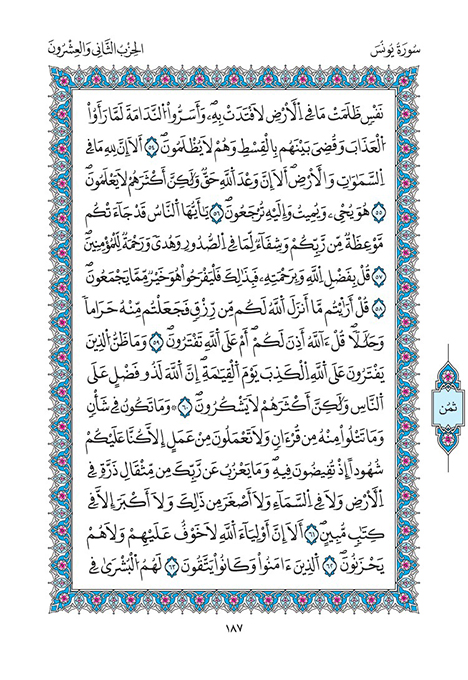 سُورَةُ يُونُسَ
الحِزْبُ الثَّانِي وَالعِشْرُونَ
نَفْسٍ ظَلَمَتْ مَا فِي اِ۬لْأَرْضِ لَافْتَدَتْ بِهِۦۖ وَأَسَرُّواْ اُ۬لنَّدَامَةَ لَمَّا رَأَوُاْ
اُ۬لْعَذَابَۖ وَقُضِيَ بَيْنَهُم بِالْقِسْطِ وَهُمْ لَا يُظْلَمُونَۖ ٥٤ أَلَآ إِنَّ لِلهِ مَا فِي
اِ۬لسَّمَٰوَٰتِ وَالْأَرْضِۖ أَلَآ إِنَّ وَعْدَ اَ۬للَّهِ حَقٌّ وَلَٰكِنَّ أَكْثَرَهُمْ لَا يَعْلَمُونَۖ
٥٥ هُوَ يُحْيِۦ وَيُمِيتُ وَإِلَيْهِ تُرْجَعُونَۖ ٥٦ يَٰٓأَيُّهَا اَ۬لنَّاسُ قَدْ جَآءَتْكُم
مَّوْعِظَةٌ مِّن رَّبِّكُمْ وَشِفَآءٌ لِّمَا فِي اِ۬لصُّدُورِ وَهُدىٗ وَرَحْمَةٌ لِّلْمُؤْمِنِينَۖ
٥٧ قُلْ بِفَضْلِ اِ۬للَّهِ وَبِرَحْمَتِهِۦ فَبِذَٰلِكَ فَلْيَفْرَحُواْ هُوَ خَيْرٌ مِّمَّا يَجْمَعُونَۖ
٥٨ قُلْ أَرَٰٓيْتُم مَّآ أَنزَلَ اَ۬للَّهُ لَكُم مِّن رِّزْقٍ فَجَعَلْتُم مِّنْهُ حَرَاماٗ
وَحَلَٰلاٗۖ قُلْ ءَآللَّهُ أَذِنَ لَكُمْۖ أَمْ عَلَى اَ۬للَّهِ تَفْتَرُونَۖ ٥٩ وَمَا ظَنُّ اُ۬لذِينَ
يَفْتَرُونَ عَلَى اَ۬للَّهِ اِ۬لْكَذِبَ يَوْمَ اَ۬لْقِيَٰمَةِۖ إِنَّ اَ۬للَّهَ لَذُو فَضْلٍ عَلَى
اَ۬لنَّاسِ وَلَٰكِنَّ أَكْثَرَهُمْ لَا يَشْكُرُونَۖ ٦٠ وَمَا تَكُونُ فِي شَأْنٍ
وَمَا تَتْلُواْ مِنْهُ مِن قُرْءَانٍ وَلَا تَعْمَلُونَ مِنْ عَمَلٍ إِلَّا كُنَّا عَلَيْكُمْ
شُهُوداً إِذْ تُفِيضُونَ فِيهِۖ وَمَا يَعْزُبُ عَن رَّبِّكَ مِن مِّثْقَالِ ذَرَّةٍ فِي
اِ۬لْأَرْضِ وَلَا فِي اِ۬لسَّمَآءِ وَلَآ أَصْغَرَ مِن ذَٰلِكَ وَلَآ أَكْبَرَ إِلَّا فِي
كِتَٰبٍ مُّبِينٍۖ ٦١ أَلَآ إِنَّ أَوْلِيَآءَ اَ۬للَّهِ لَا خَوْفٌ عَلَيْهِمْ وَلَا هُمْ
يَحْزَنُونَۖ ٦٢ اَ۬لذِينَ ءَامَنُواْ وَكَانُواْ يَتَّقُونَۖ ٦٣ لَهُمُ اُ۬لْبُشْرَىٰ فِي
ثُمُن
١٨٧